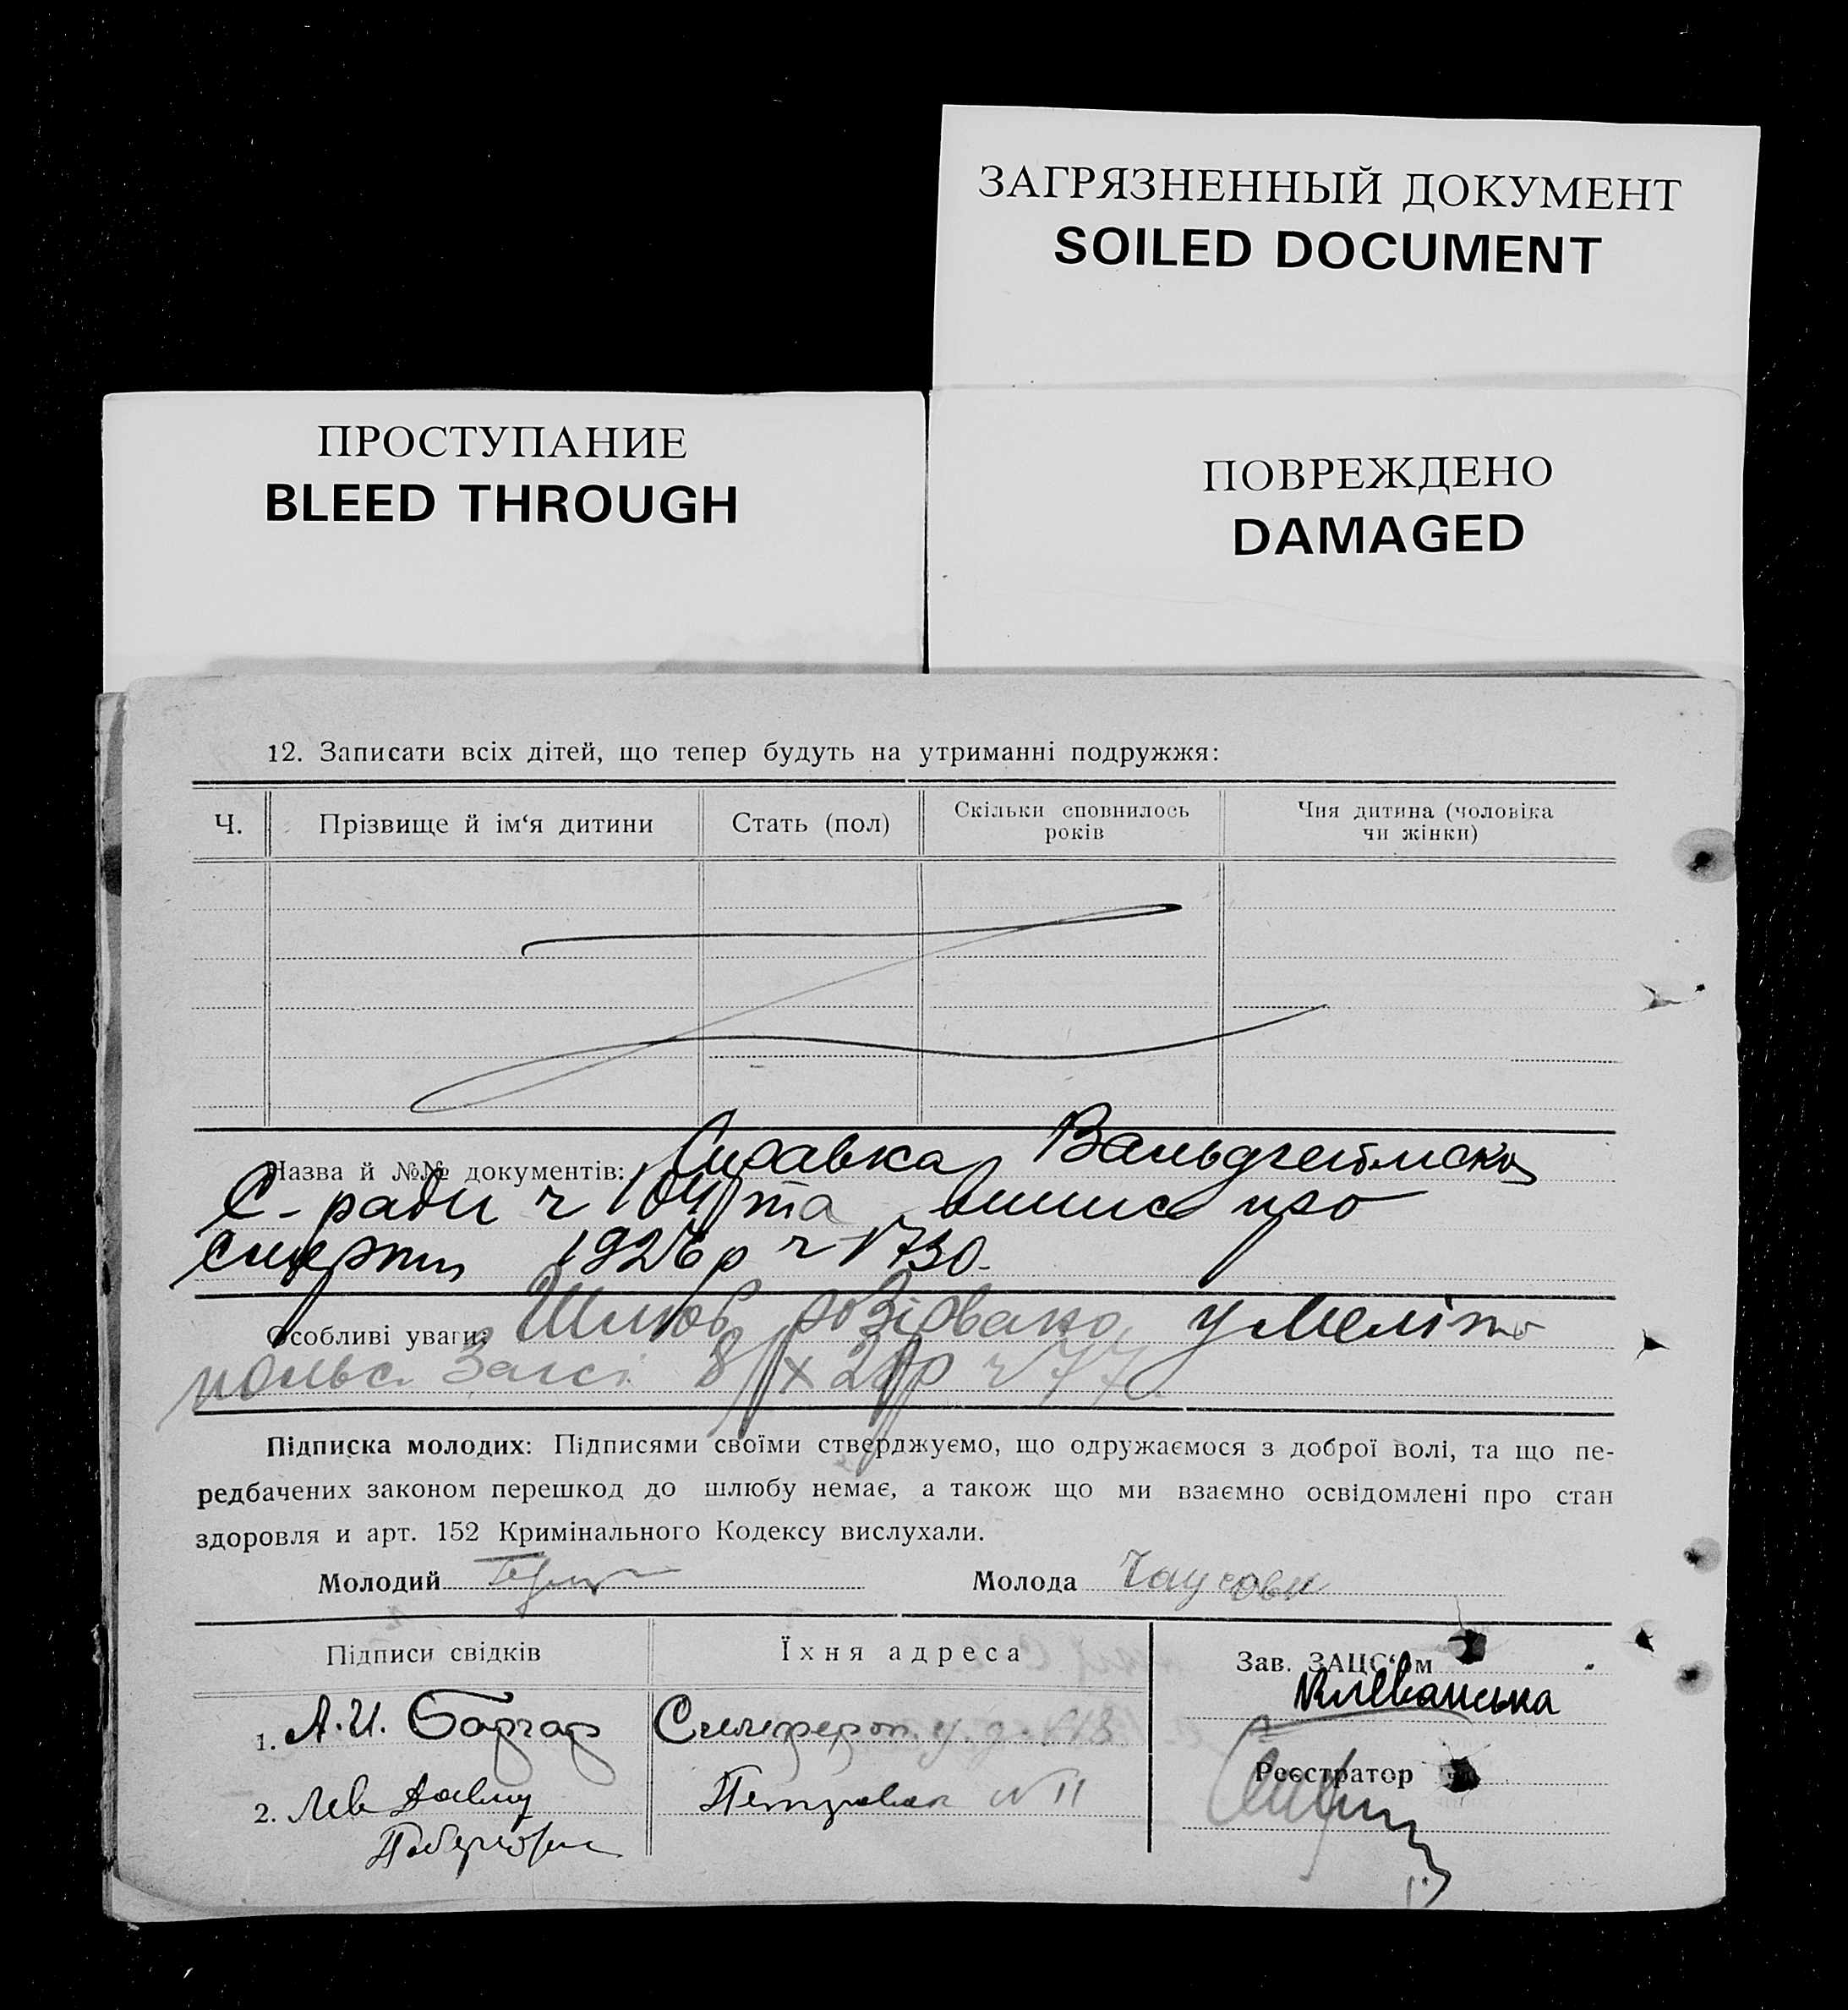 ЗАГРЯЗНЕННЫЙ ДОКУМЕНТ
SOILED DOCUMENT
ПРОСТУПАНИЕ
BLEED THROUGH
ПОВРЕЖДЕНО
DAMAGED
12. Записати всіх дітей, що тепер будуть на утриманні подружжя:
Ч.
Прізвище й ім‘я дитини
Стать (пол)
Скільки сповнилось
років
Чия дитина (чоловіка
чи жінки)
Назва й №№ документів: Справка Вальдгеймськ
С-ради ч 104 та випис про
смерть 1926р ч 1730.
Особливі уваги: Шлюб розірвано у Меліто
польс. Загсі 8/X 29р ч 77.
Підписка молодих: Підписями своїми стверджуємо, що одружаємося з доброї волі, та що пе-
редбачених законом перешкод до шлюбу немає, а також що ми взаємно освідомлені про стан
здоровля и арт. 152 Кримінального Кодексу вислухали.
Молодий
Молода Чаусова
Підписи свідків
Їхня адреса
Зав. ЗАЦС‘ом
1. А.И.
Симфероп. у. д. №13
2. Лев
№ 11
Реєстратор